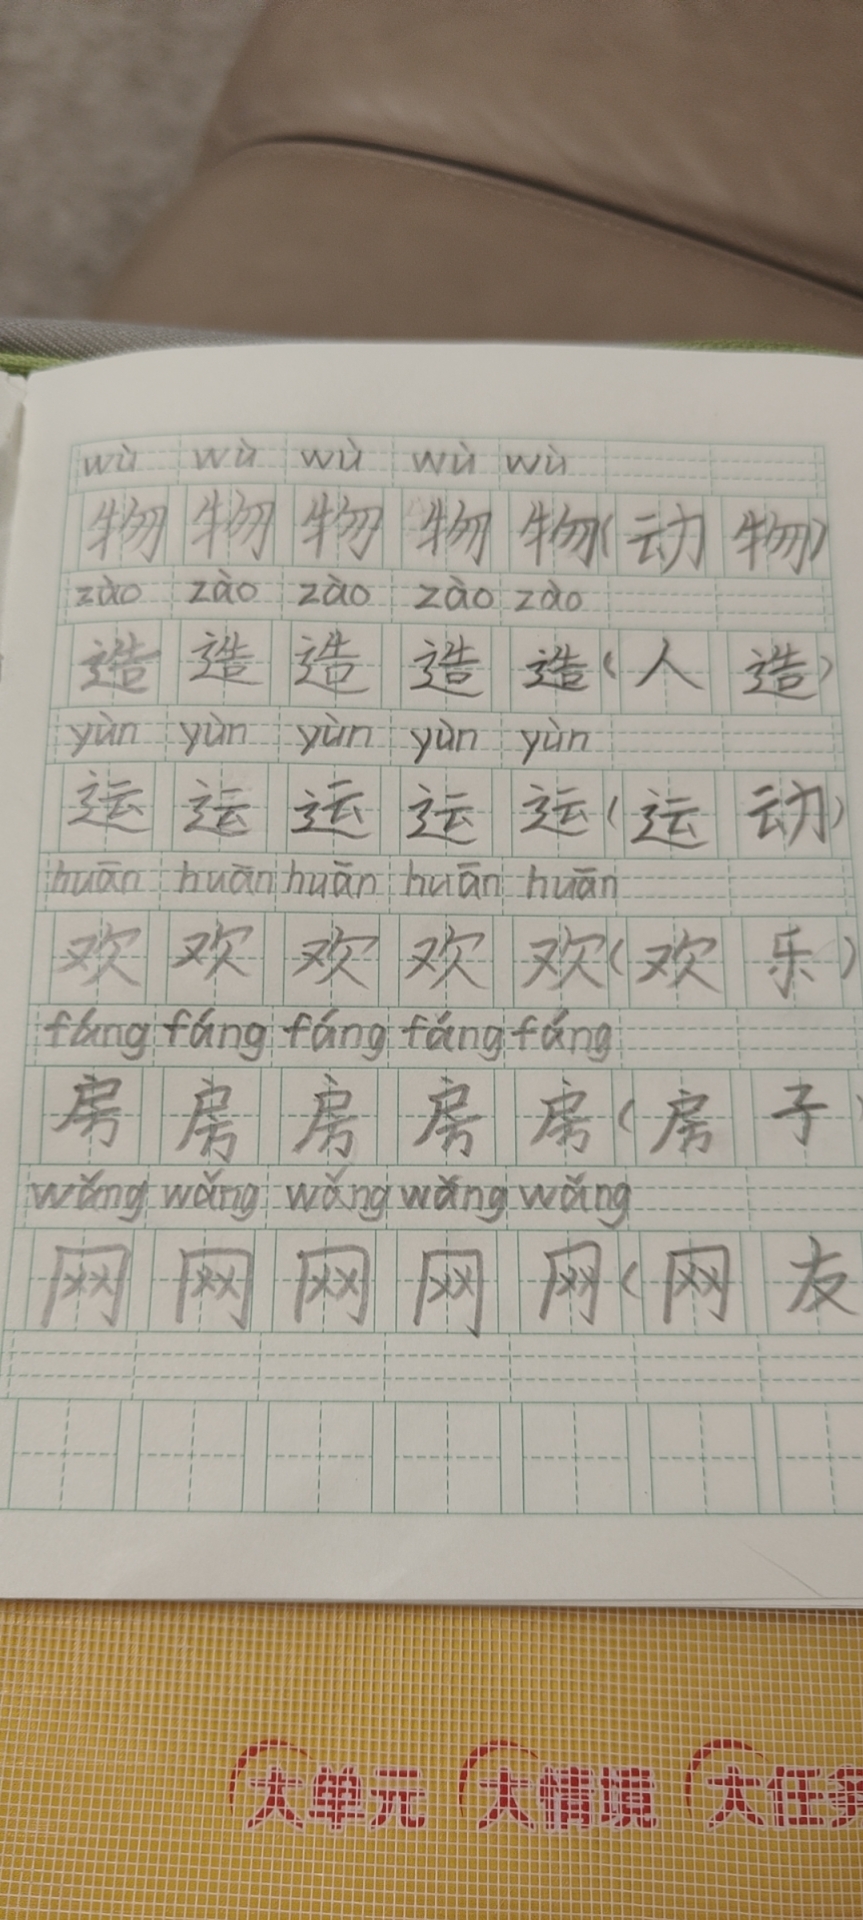 wù wù wù wù wù
物 物 物 物 物(动 物)
zào zào zào zào zào
造 造 造 造 造(人 造)
yùn yùn yùn yùn yùn
运 运 运 运 运(运 动)
huān huān huān huān huān
欢 欢 欢 欢 欢(欢 乐)
fáng fáng fáng fáng fáng
房 房 房 房 房(房 子)
wǎng wǎng wǎng wǎng wǎng
网 网 网 网 网(网 友
大单元 大情境 大任务